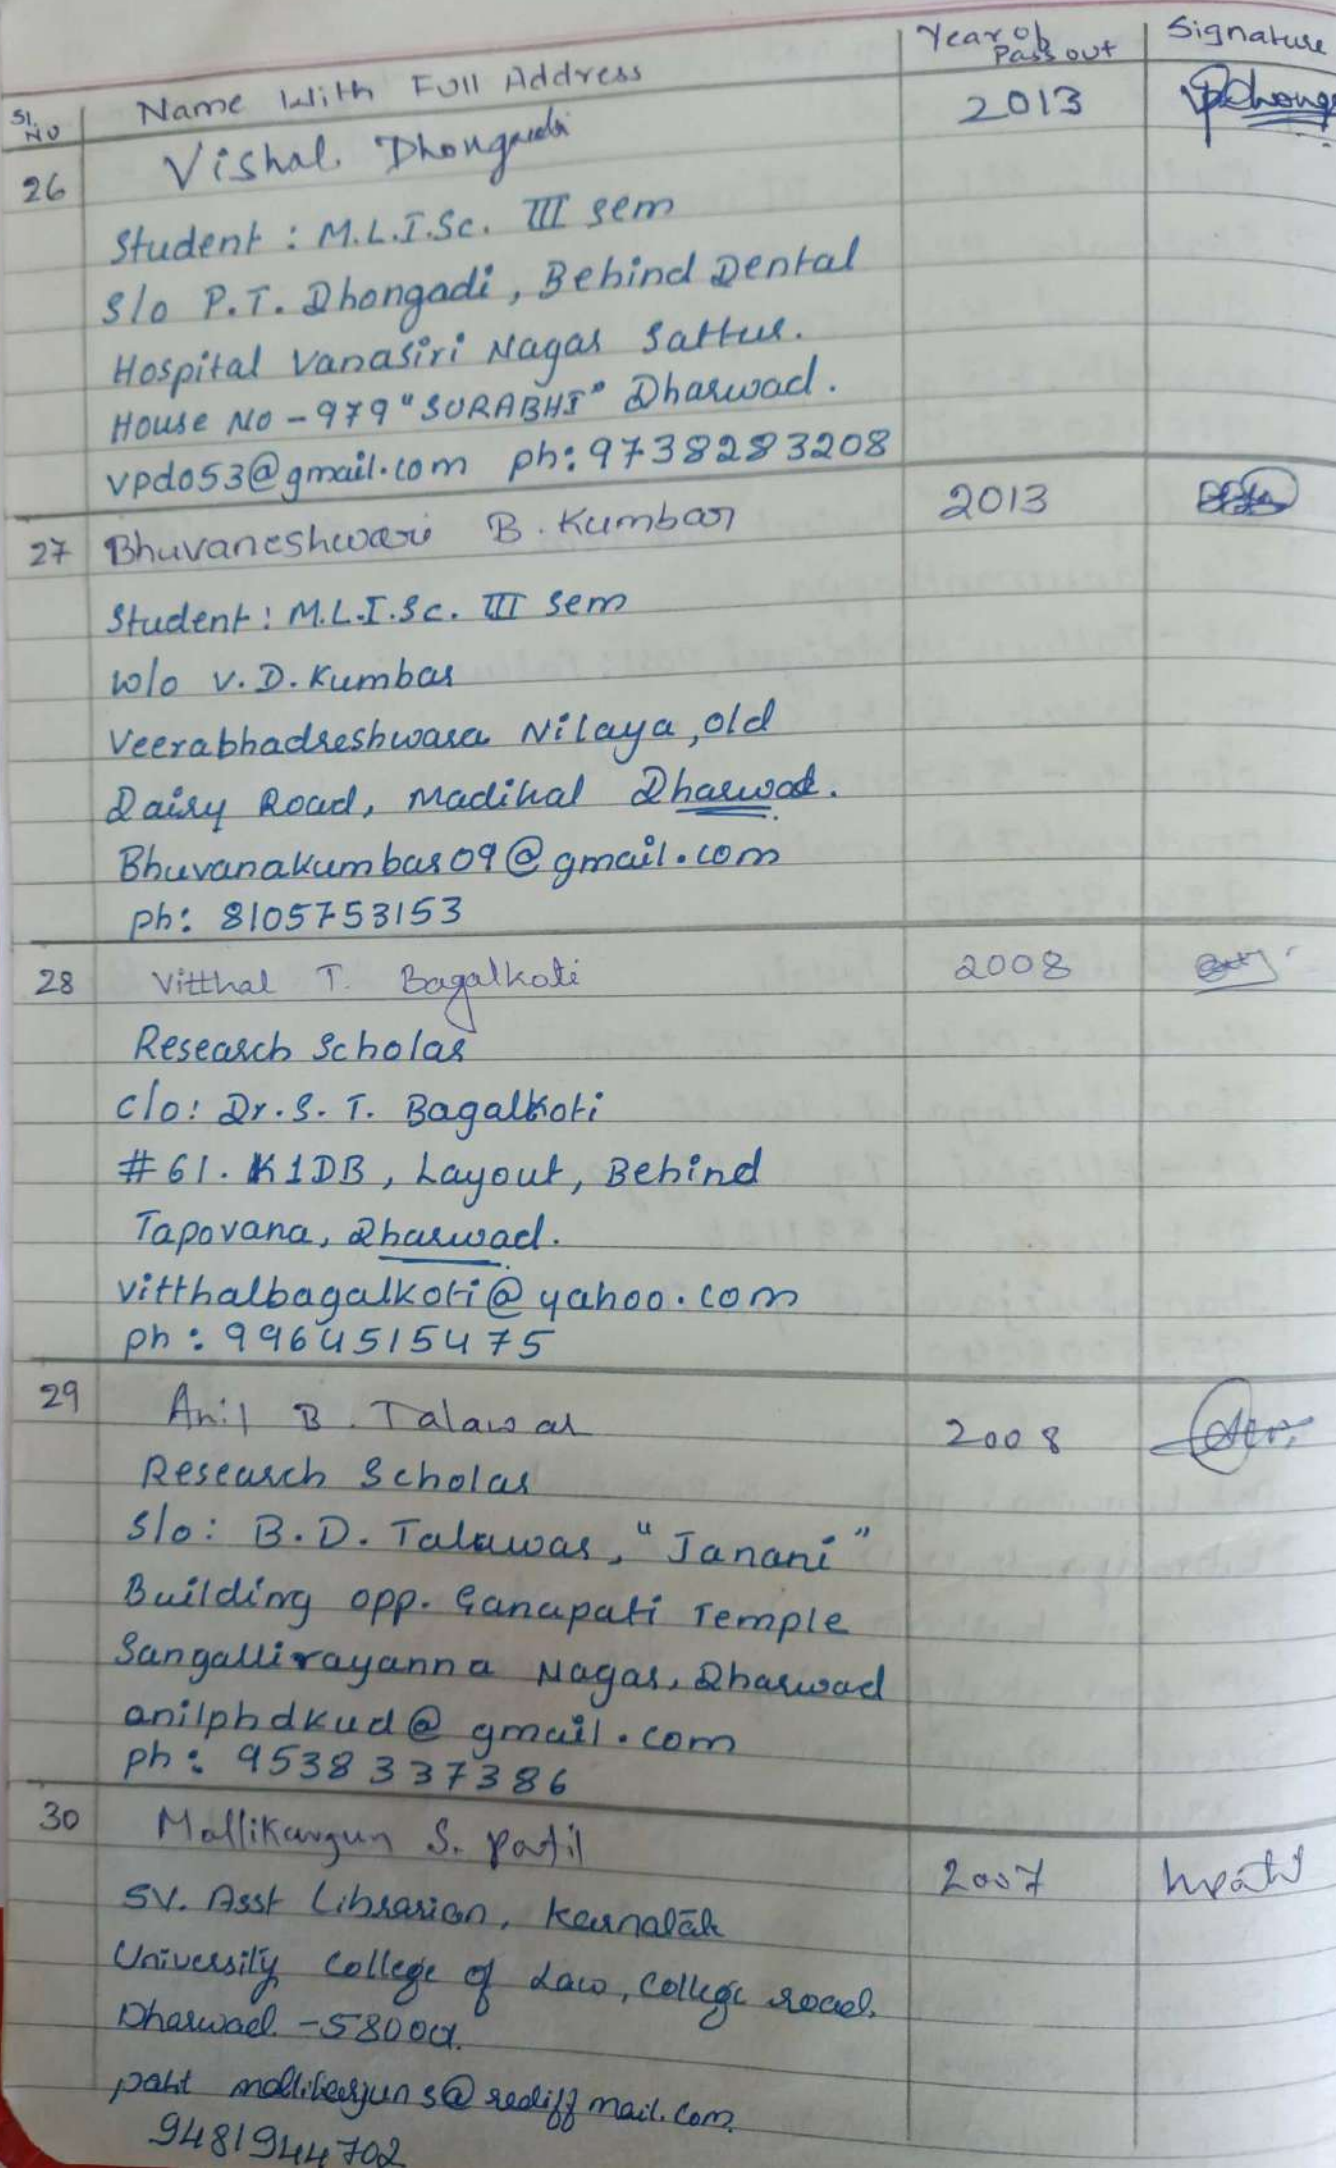 Sl. No Name With Full Address Year of Pass out Signature
26 Vishal Dhongadi 2013
Student : M.L.I.Sc. III sem
S/o P.T. Dhongadi, Behind Dental
Hospital Vanasiri Nagar Sattur.
House No - 979 "SURABHI" Dharwad.
vpd053@gmail.com ph: 9738283208
27 Bhuvaneshwari B. Kumbar 2013
Student : M.L.I.Sc. III sem
W/o V.D. Kumbar
Veerabhadreshwara Nilaya, old
Dairy Road, Madihal Dharwad.
Bhuvanakumbar09@gmail.com
ph: 8105753153
28 Vitthal T. Bagalkoti 2008
Research Scholar
C/o: Dr. S. T. Bagalkoti
#61. KIDB, Layout, Behind
Tapovana, Dharwad.
vitthalbagalkoti@yahoo.com
ph: 9964515475
29 Anil B. Talawar 2008
Research Scholar
S/o: B.D. Talawar, "Janani"
Building opp. Ganapati Temple
Sangallirayanna Nagar, Dharwad
anilphdkud@gmail.com
ph: 9538337386
30 Mallikarjun S. Patil 2007
Sr. Asst Librarian, Karnatak
University College of Law, College road.
Dharwad -
mallikarjuns@rediffmail.com
9481944702